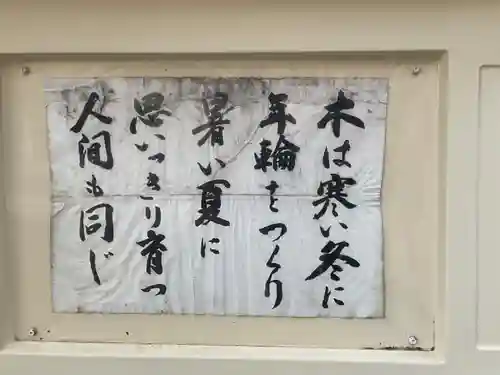 木は寒い冬に
年輪をつくり
暑い夏に
思いっきり育つ
人間も同じ